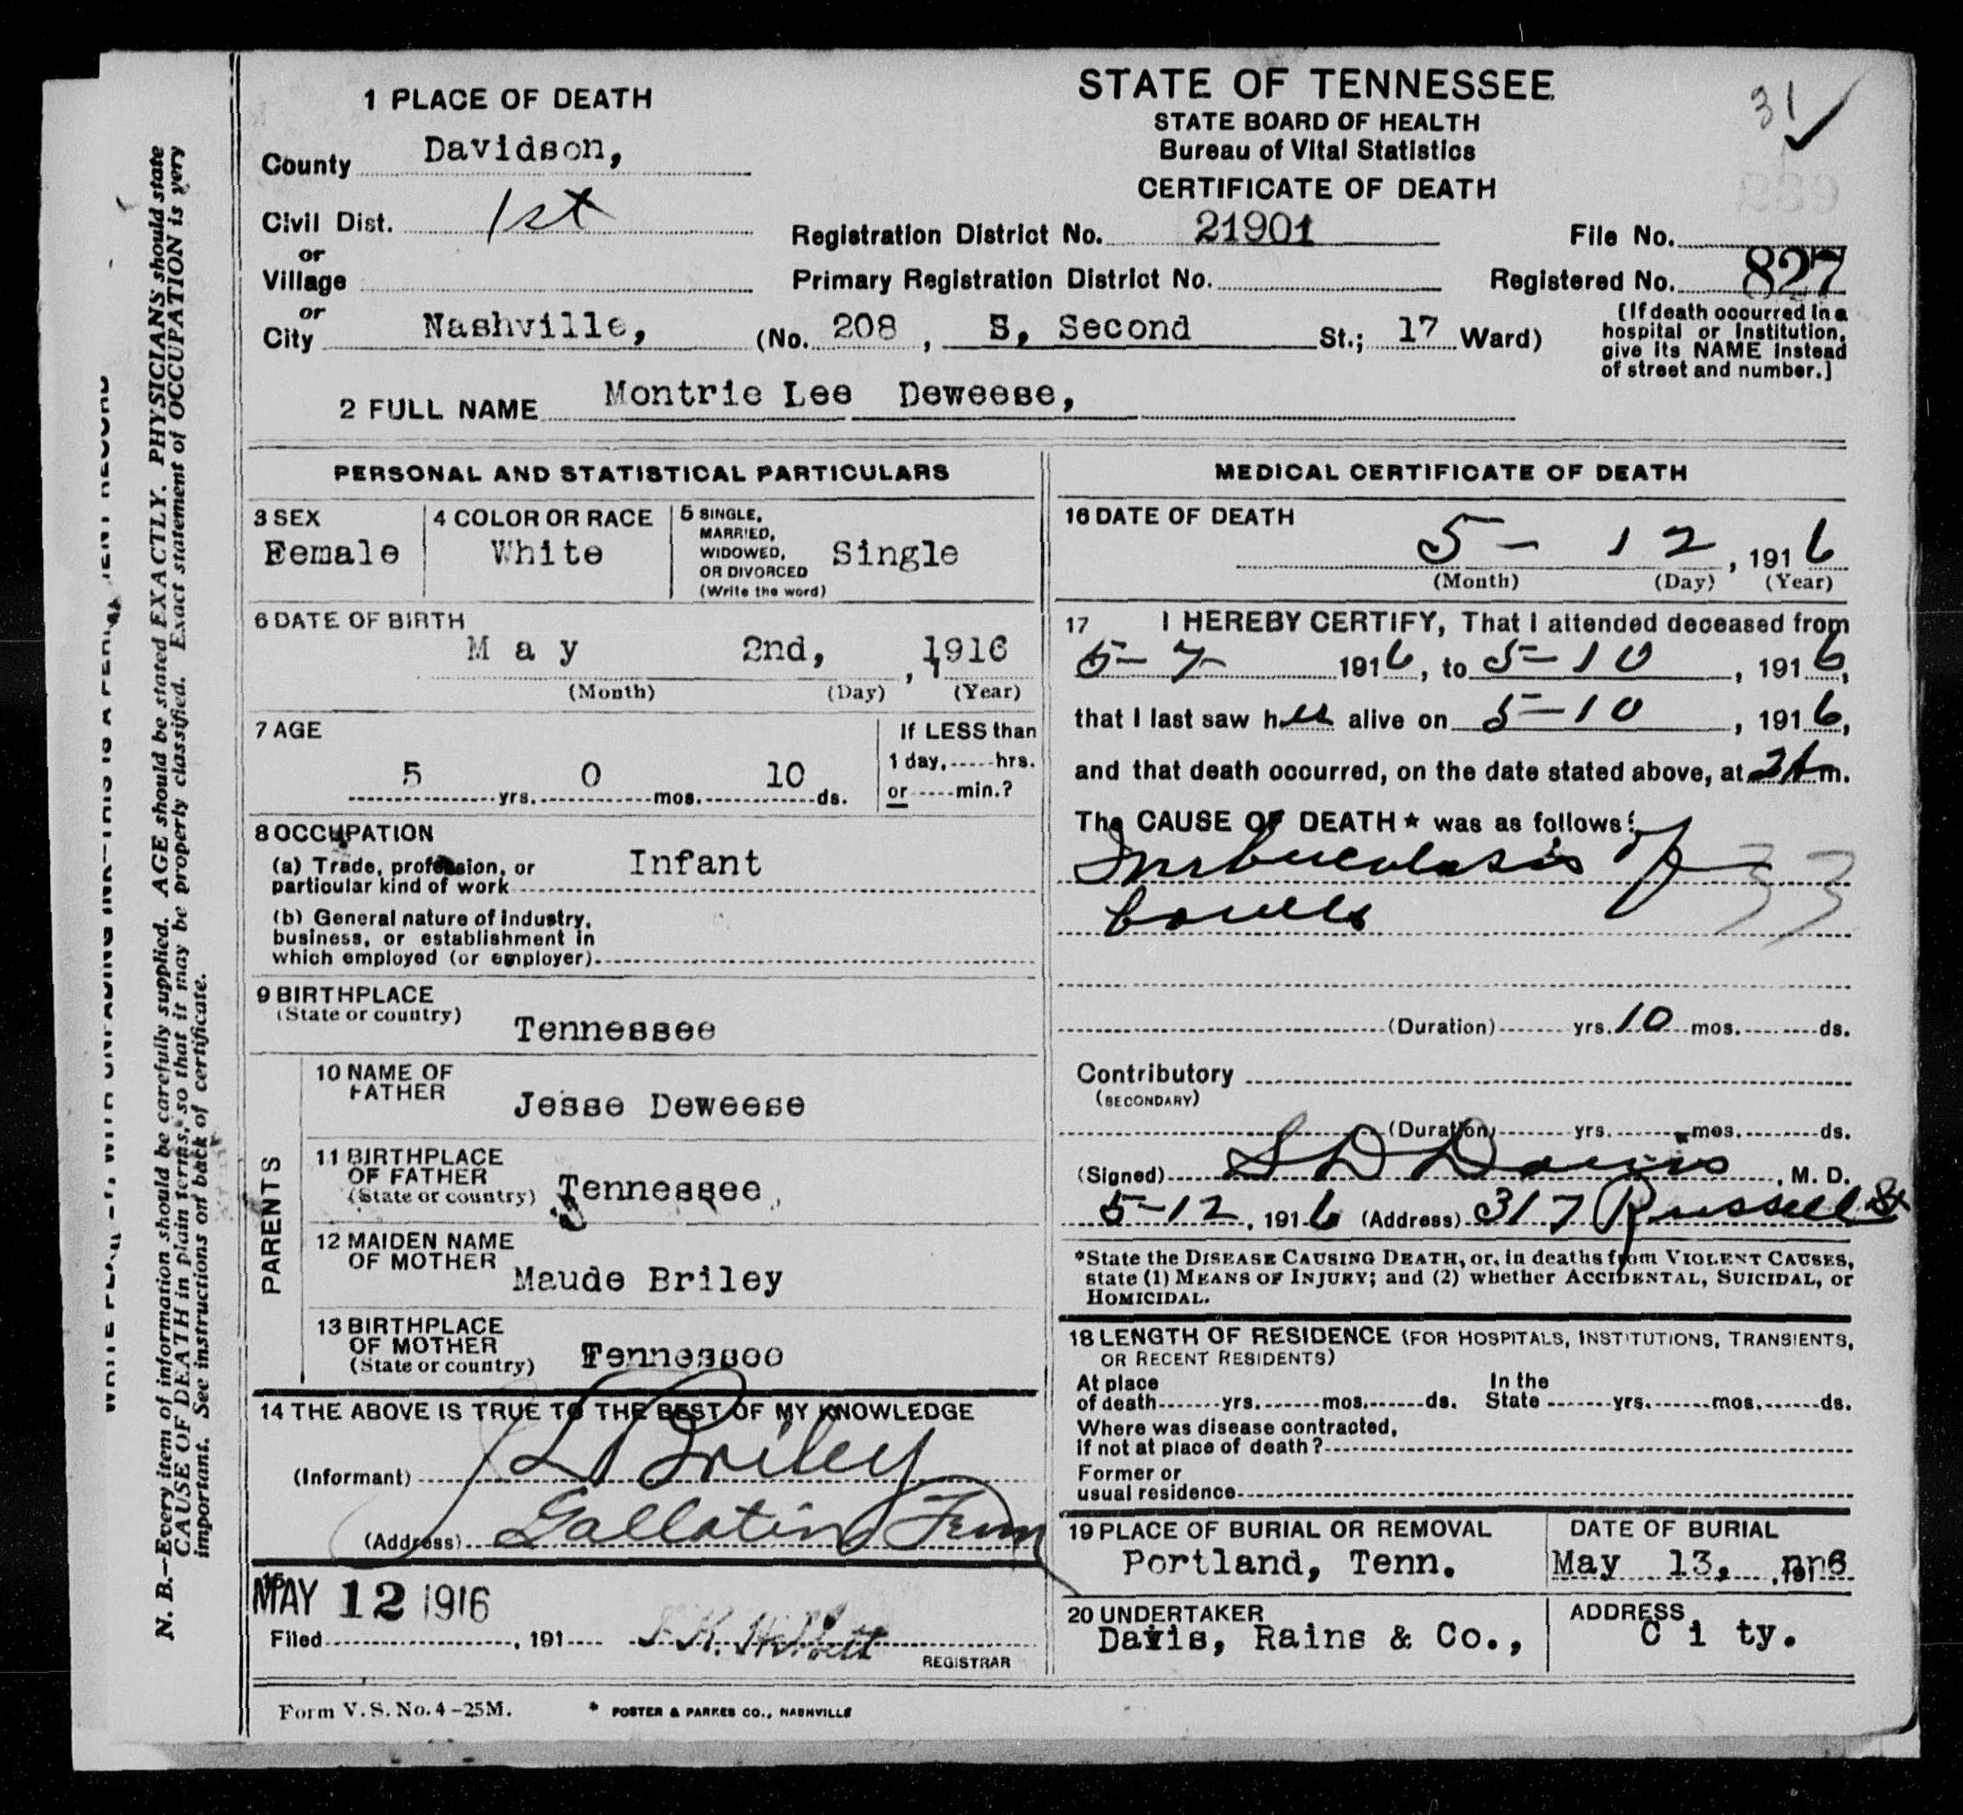 STATE OF TENNESSEE
STATE BOARD OF HEALTH
Bureau of Vital Statistics
CERTIFICATE OF DEATH
31
1 PLACE OF DEATH
County Davidson,
Civil Dist. 1st
or
Village
or
City Nashville, (No. 208, S, Second St.; 17 Ward)
Registration District No. 21901
File No.
Primary Registration District No.
Registered No. 827
[If death occurred in a
hospital or institution,
give its NAME instead
of street and number.]
2 FULL NAME Montrie Lee Deweese,
PERSONAL AND STATISTICAL PARTICULARS
3 SEX
Female
4 COLOR OR RACE
White
5 SINGLE,
MARRIED,
WIDOWED,
OR DIVORCED
(Write the word)
Single
6 DATE OF BIRTH
May 2nd, , 1916
(Month) (Day) (Year)
7 AGE
5 yrs. 0 mos. 10 ds.
If LESS than
1 day, hrs.
or min.?
8 OCCUPATION
(a) Trade, profession, or
particular kind of work Infant
(b) General nature of industry,
business, or establishment in
which employed (or employer)
9 BIRTHPLACE
(State or country) Tennessee
PARENTS
10 NAME OF
FATHER Jesse Deweese
11 BIRTHPLACE
OF FATHER
(State or country) Tennessee,
12 MAIDEN NAME
OF MOTHER Maude Briley
13 BIRTHPLACE
OF MOTHER
(State or country) Tennessee
14 THE ABOVE IS TRUE TO THE BEST OF MY KNOWLEDGE
(Informant) L Briley
(Address) Gallatin Tenn
15
MAY 12 1916
Filed , 191
REGISTRAR
MEDICAL CERTIFICATE OF DEATH
16 DATE OF DEATH
5 - 12, 1916
(Month) (Day) (Year)
17 I HEREBY CERTIFY, That I attended deceased from
5-7- 1916, to 5-10, 1916,
that I last saw her alive on 5-10, 1916,
and that death occurred, on the date stated above, at m.
The CAUSE OF DEATH* was as follows:
Turbuculosis of
bowels
33
(Duration) yrs. 10 mos. ds.
Contributory
(SECONDARY)
(Duration) yrs. mos. ds.
(Signed) S D Davis, M. D.
5-12, 1916 (Address) 317 Russell St
*State the DISEASE CAUSING DEATH, or, in deaths from VIOLENT CAUSES,
state (1) MEANS OF INJURY; and (2) whether ACCIDENTAL, SUICIDAL, or
HOMICIDAL.
18 LENGTH OF RESIDENCE (FOR HOSPITALS, INSTITUTIONS, TRANSIENTS,
OR RECENT RESIDENTS)
At place
of death yrs. mos. ds. In the
State yrs. mos. ds.
Where was disease contracted,
if not at place of death?
Former or
usual residence
19 PLACE OF BURIAL OR REMOVAL
Portland, Tenn.
DATE OF BURIAL
May 13,
20 UNDERTAKER
Davis, Rains & Co.,
ADDRESS
C i ty.
Form V. S. No. 4-25M.
* FOSTER & PARKES CO., NASHVILLE
N. B.—Every item of information should be carefully supplied. AGE should be stated EXACTLY. PHYSICIANS should state
CAUSE OF DEATH in plain terms, so that it may be properly classified. Exact statement of OCCUPATION is very
important. See instructions on back of certificate.